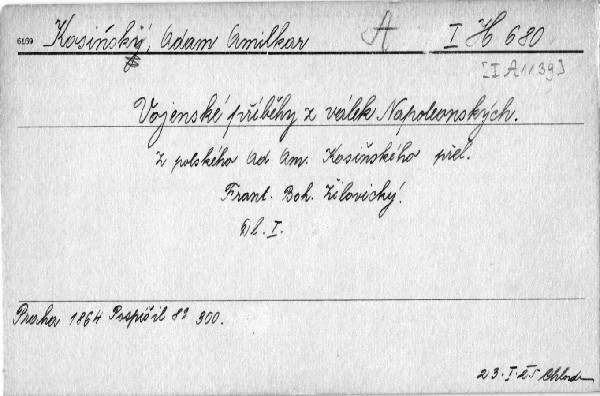 6169 Kosińský, Adam Amilkar A I H 680
[I A 1139]
Vojenské příběhy z válek Napoleonských.
Z polského Ad. Am. Kosińského přel.
Frant. Boh. Žilovický.
Dl. I.
Praha 1864 Pospíšil 8° 300.
23.I.25